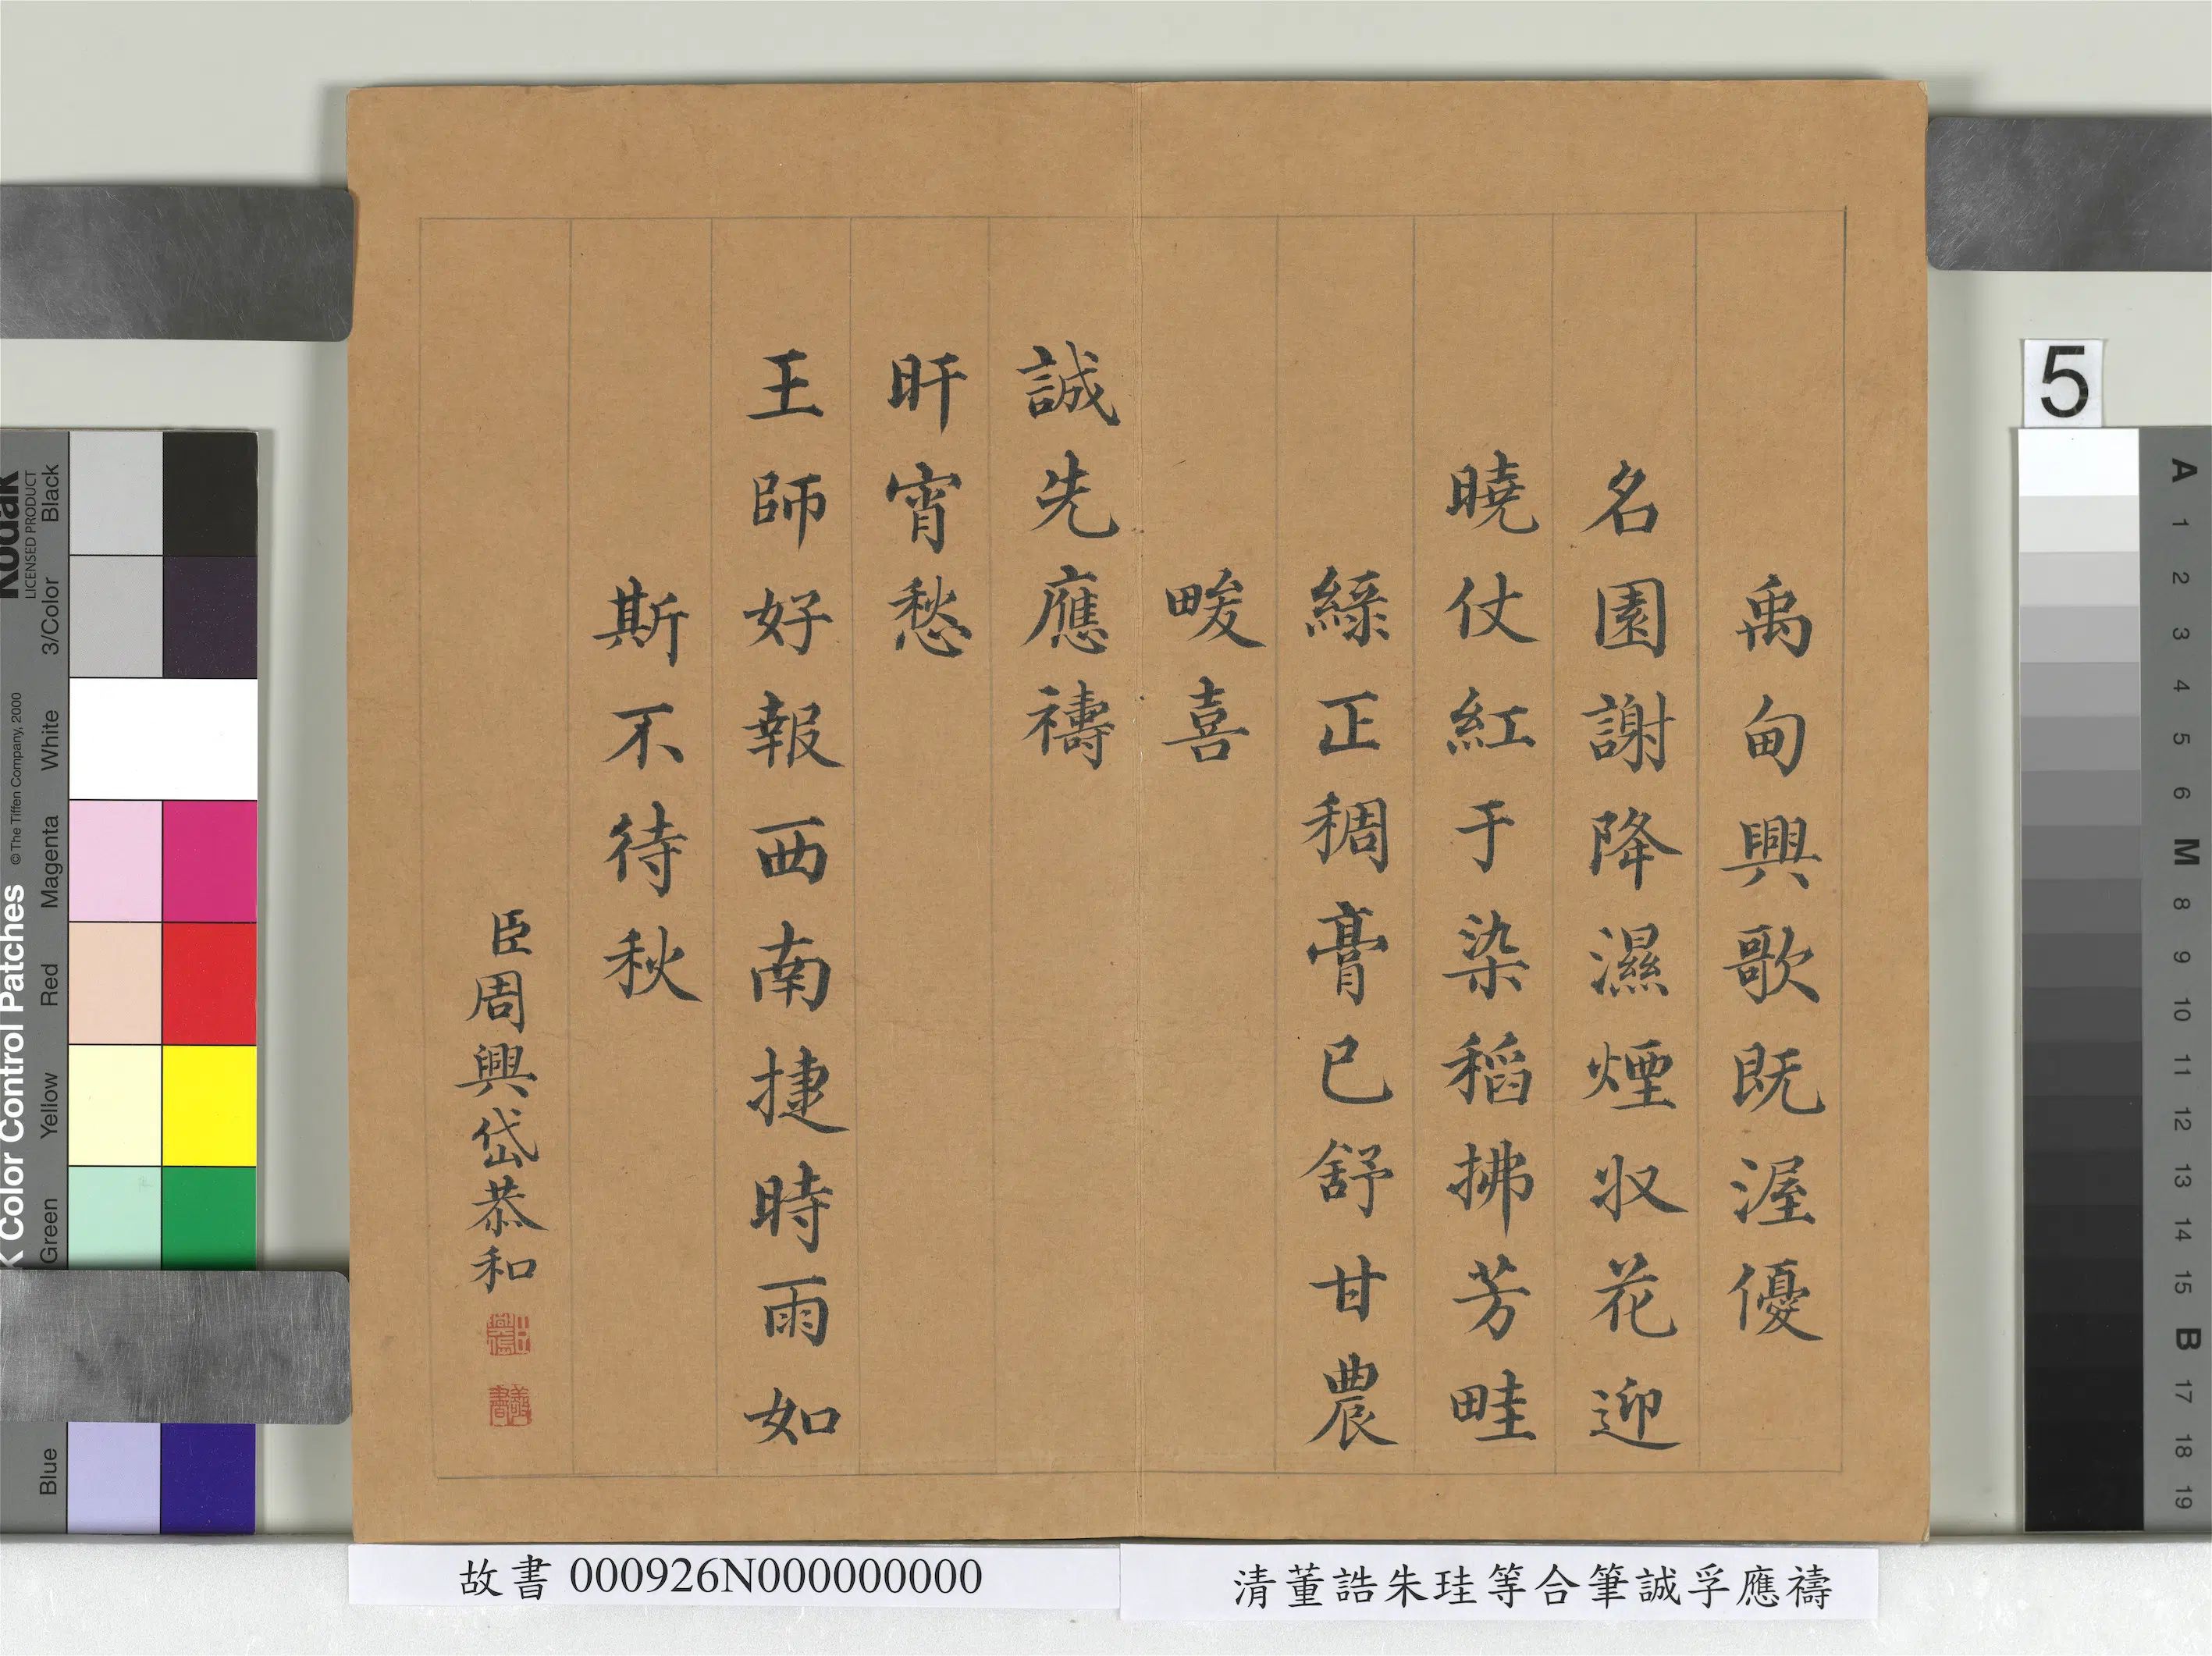 禹甸興歌既渥優
名園謝降濕煙収花迎
曉仗紅于染稻拂芳畦
綠正稠膏已舒甘農
畯喜
誠先應禱
旰宵愁
王師好報西南捷時雨如
斯不待秋
臣周興岱恭和
故書 000926N000000000
清董誥朱珪等合筆誠孚應禱
5
Kodak
LICENSED PRODUCT
Color Control Patches
© The Tiffen Company, 2000
Black
3/Color
White
Magenta
Red
Yellow
Green
Blue
A
1
2
3
4
5
6
M
8
9
10
11
12
13
14
15
B
17
18
19